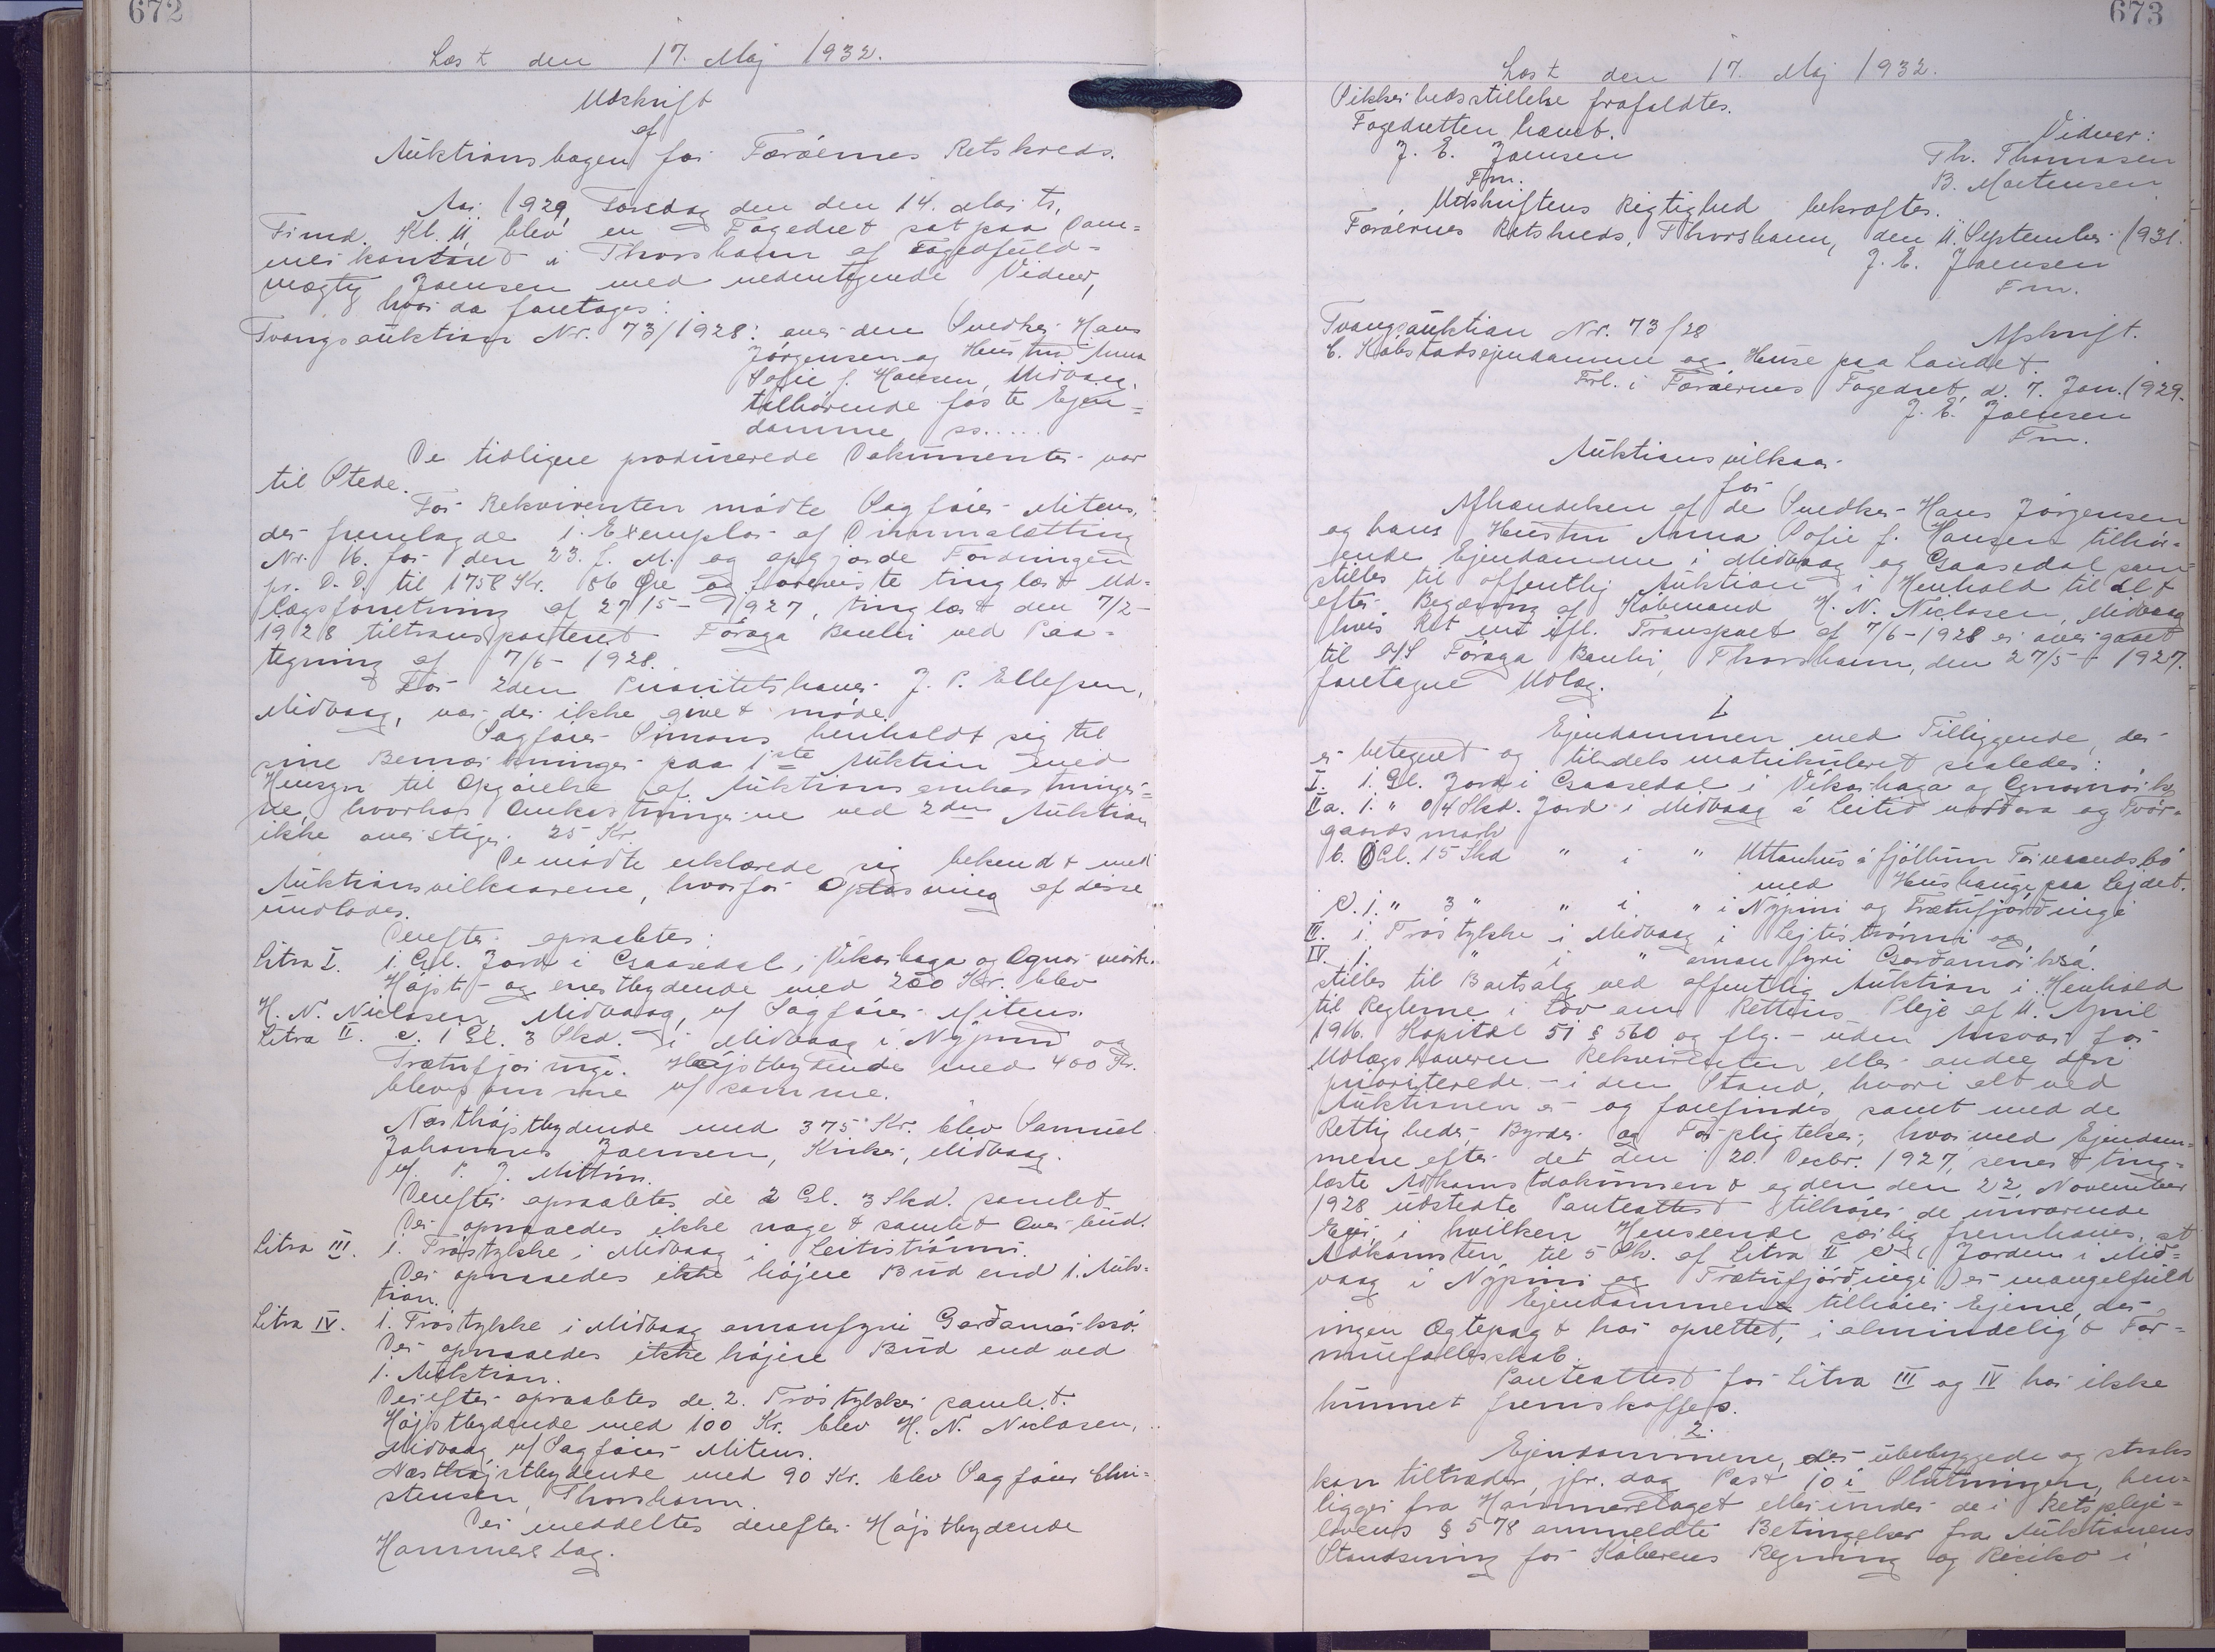 672
Læst den 17. Maj 1932.
Udskrift
af
Auktionsbogen for Færøernes Retskreds.
Aar 1929, Torsdag den den 14. Marts,
Fimd. Kl. 11 blev en Fogedret sat paa Dom=
merkontoret i Thorshavn af Fogedfuld=
mægtig Joensen med undertegnede Vidner,
hvor da foretoges:
Tvangsauktion Nr. 73/1928: over den Snedker Hans
Jørgensen og Hustru Anna
Sofie f. Hansen, Midvaag,
tilhørende faste Ejen=
domme ss.....
De tidligere producerede Dokumenter var
til Stede.
For Rekvirenten mødte Sagfører Mitens,
der fremlagde 1 Exemplar af Dimmalætting
Nr. 16 for den 23. f. M. og opgjorde Fordringen
pr. D. D. til 1758 Kr. 86 Øre og foreviste tinglæst Ud=
lægsforretning af 27/5-1927, tinglæst den 7/2-
1928 tiltransporteret Føroya Banki ved Paa=
tegning af 7/6-1928.
For 2den Prioritetshaver J. P. Ellefsen,
Midvaag, var der ikke givet møde.
Sagfører Simons henholdt sig til
sine Bemærkninger paa 1ste Auktion med
Hensyn til Opgørelse af Auktionsomkostninger=
ne, hvorhos Omkostningerne ved 2den Auktion
ikke overstiger 25 Kr.
De mødte erklærede sig bekendt med
Auktionsvilkaarene, hvorfor Oplæsning af disse
undlodes.
Derefter opraabtes:
Litra I. 1 Gl. Jord i Gaasedal i Vikarhaga og Ognarmørk.
Højst- og enestbydende med 200 Kr. blev
H. N. Niclasen, Midvaag, v/ Sagfører Mitens.
Litra II. c. 1 Gl. 3 Skd. i Midvaag i Nýpini og
Trætufjørðingi. Højstbydende med 400 Kr.
blev samme v/ samme.
Næsthøjstbydende med 375 Kr. blev Samuel
Johannes Joensen, Kirker, Midvaag.
v/ P. J. Mittún.
Derefter opraabtes de 2 Gl. 3 Skd. samlet.
Der opnaaedes ikke noget samlet Overbud.
Litra III. 1. Trøstykke i Midvaag i Leitistrømmi.
Der opnaaedes ikke højere Bud end 1. Auk=
tion.
Litra IV. 1. Trøstykke i Midvaag omanfyri Garðamørksá.
Der opnaaedes ikke højere Bud end ved
1. Auktion.
Derefter opraabtes de 2. Trøstykker samlet.
Højstbydende med 100 Kr. blev H. N. Niclasen,
Midvaag v/ Sagfører Mitens.
Næsthøjstbydende med 90 Kr. blev Sagfører Chri=
stensen, Thorshavn.
Der meddeltes derefter Højstbydende
Hammerslag.
673
Læst den 17. Maj 1932.
Sikkerhedsstillelse frafaldtes.
Fogedretten hævet.
J. E. Joensen
Fm.
Vidner:
Th. Thomasen
B. Mortensen
Udskriftens Rigtighed bekræftes.
Færøernes Retskreds, Thorshavn, den 11. September 1931.
J. E. Joensen
Fm.
Tvangsauktion Nr. 73/28
Afskrift.
C. Købstadsejendomme og Huse paa Landet.
Frl. i Færøernes Fogedret, d. 7. Jan. 1929.
J. E. Joensen
Fm.
Auktionsvilkaar
for
Afhændelsen af de Snedker Hans Jørgensen
og hans Hustru Anna Sofie f. Hansen tilhør=
ende Ejendomme i Midvaag og Gaasedal som
stilles til offentlig Auktion i Henhold til det
efter Begæring af Købmand H. N. Niclasen, Midvaag
hvis Ret ifl. Transport af 7/6-1928 er overgaaet
til A/S Føroya Banki, Thorshavn, den 27/5-1927.
foretagne Udlæg.
1.
Ejendommen med Tilliggende, der
er betegnet og tildels matrikuleret saaledes:
I. 1 Gl. Jord i Gaasedal i Víkarhaga og Ognamørk
II a. 1. " 04 Skd. Jord i Midvaag á Leitið norðara og Tvør-
gaards mark
b. 0 Gl. 15 Skd " i " Uttanhus á fjøllum
med Hushauge paa Lejdet.
c. 1. " 3 " " i " i Nýpini og Trætufjørðingi
III. 1 Trøstykke i Midvaag i Lejtistrømmi og
IV. 1. " i " oman fyri Garðamørksá.
stilles til Bortsalg ved offentlig Auktion i Henhold
til Reglerne i Lov om Rettens Pleje af 11. April
1916. Kapitel 51 § 560 og flg. - uden Ansvar for
Udlægshaveren Rekvirenten eller andre den
prioriterede - i den Stand, hvori alt ved
Auktionen er og forefindes samt med de
Rettigheder, Byrder og Forpligtelser, hvormed Ejendom=
mene efter det den 20. Decbr. 1927, senest ting=
læste Adkomstdokument og den den 22. November
1928 udstedte Panteattest tilhører de nuværende
Ejer, i hvilken Henseende særlig fremhæves, at
Adkomsten til 5 Sk. af Litra II c. (Jorden i Mid=
vaag i Nýpini og Trætufjørðingi) er mangelfuld
Ejendommene tilhører Ejerne, der
ingen Ægtepagt har oprettet, i almindeligt For=
muefællesskab.
Panteattest for Litra III og IV har ikke
kunnet fremskaffes.
2.
Ejendommene, der ubebyggede og straks
kan tiltrædes, jfr. dog Post 10 i Slutningen, hen=
ligger fra Hammerslaget eller under de i Retspleje=
lovens § 578 ommeldte Betingelser fra Auktionens
Standsning for Køberens Regning og Risiko i